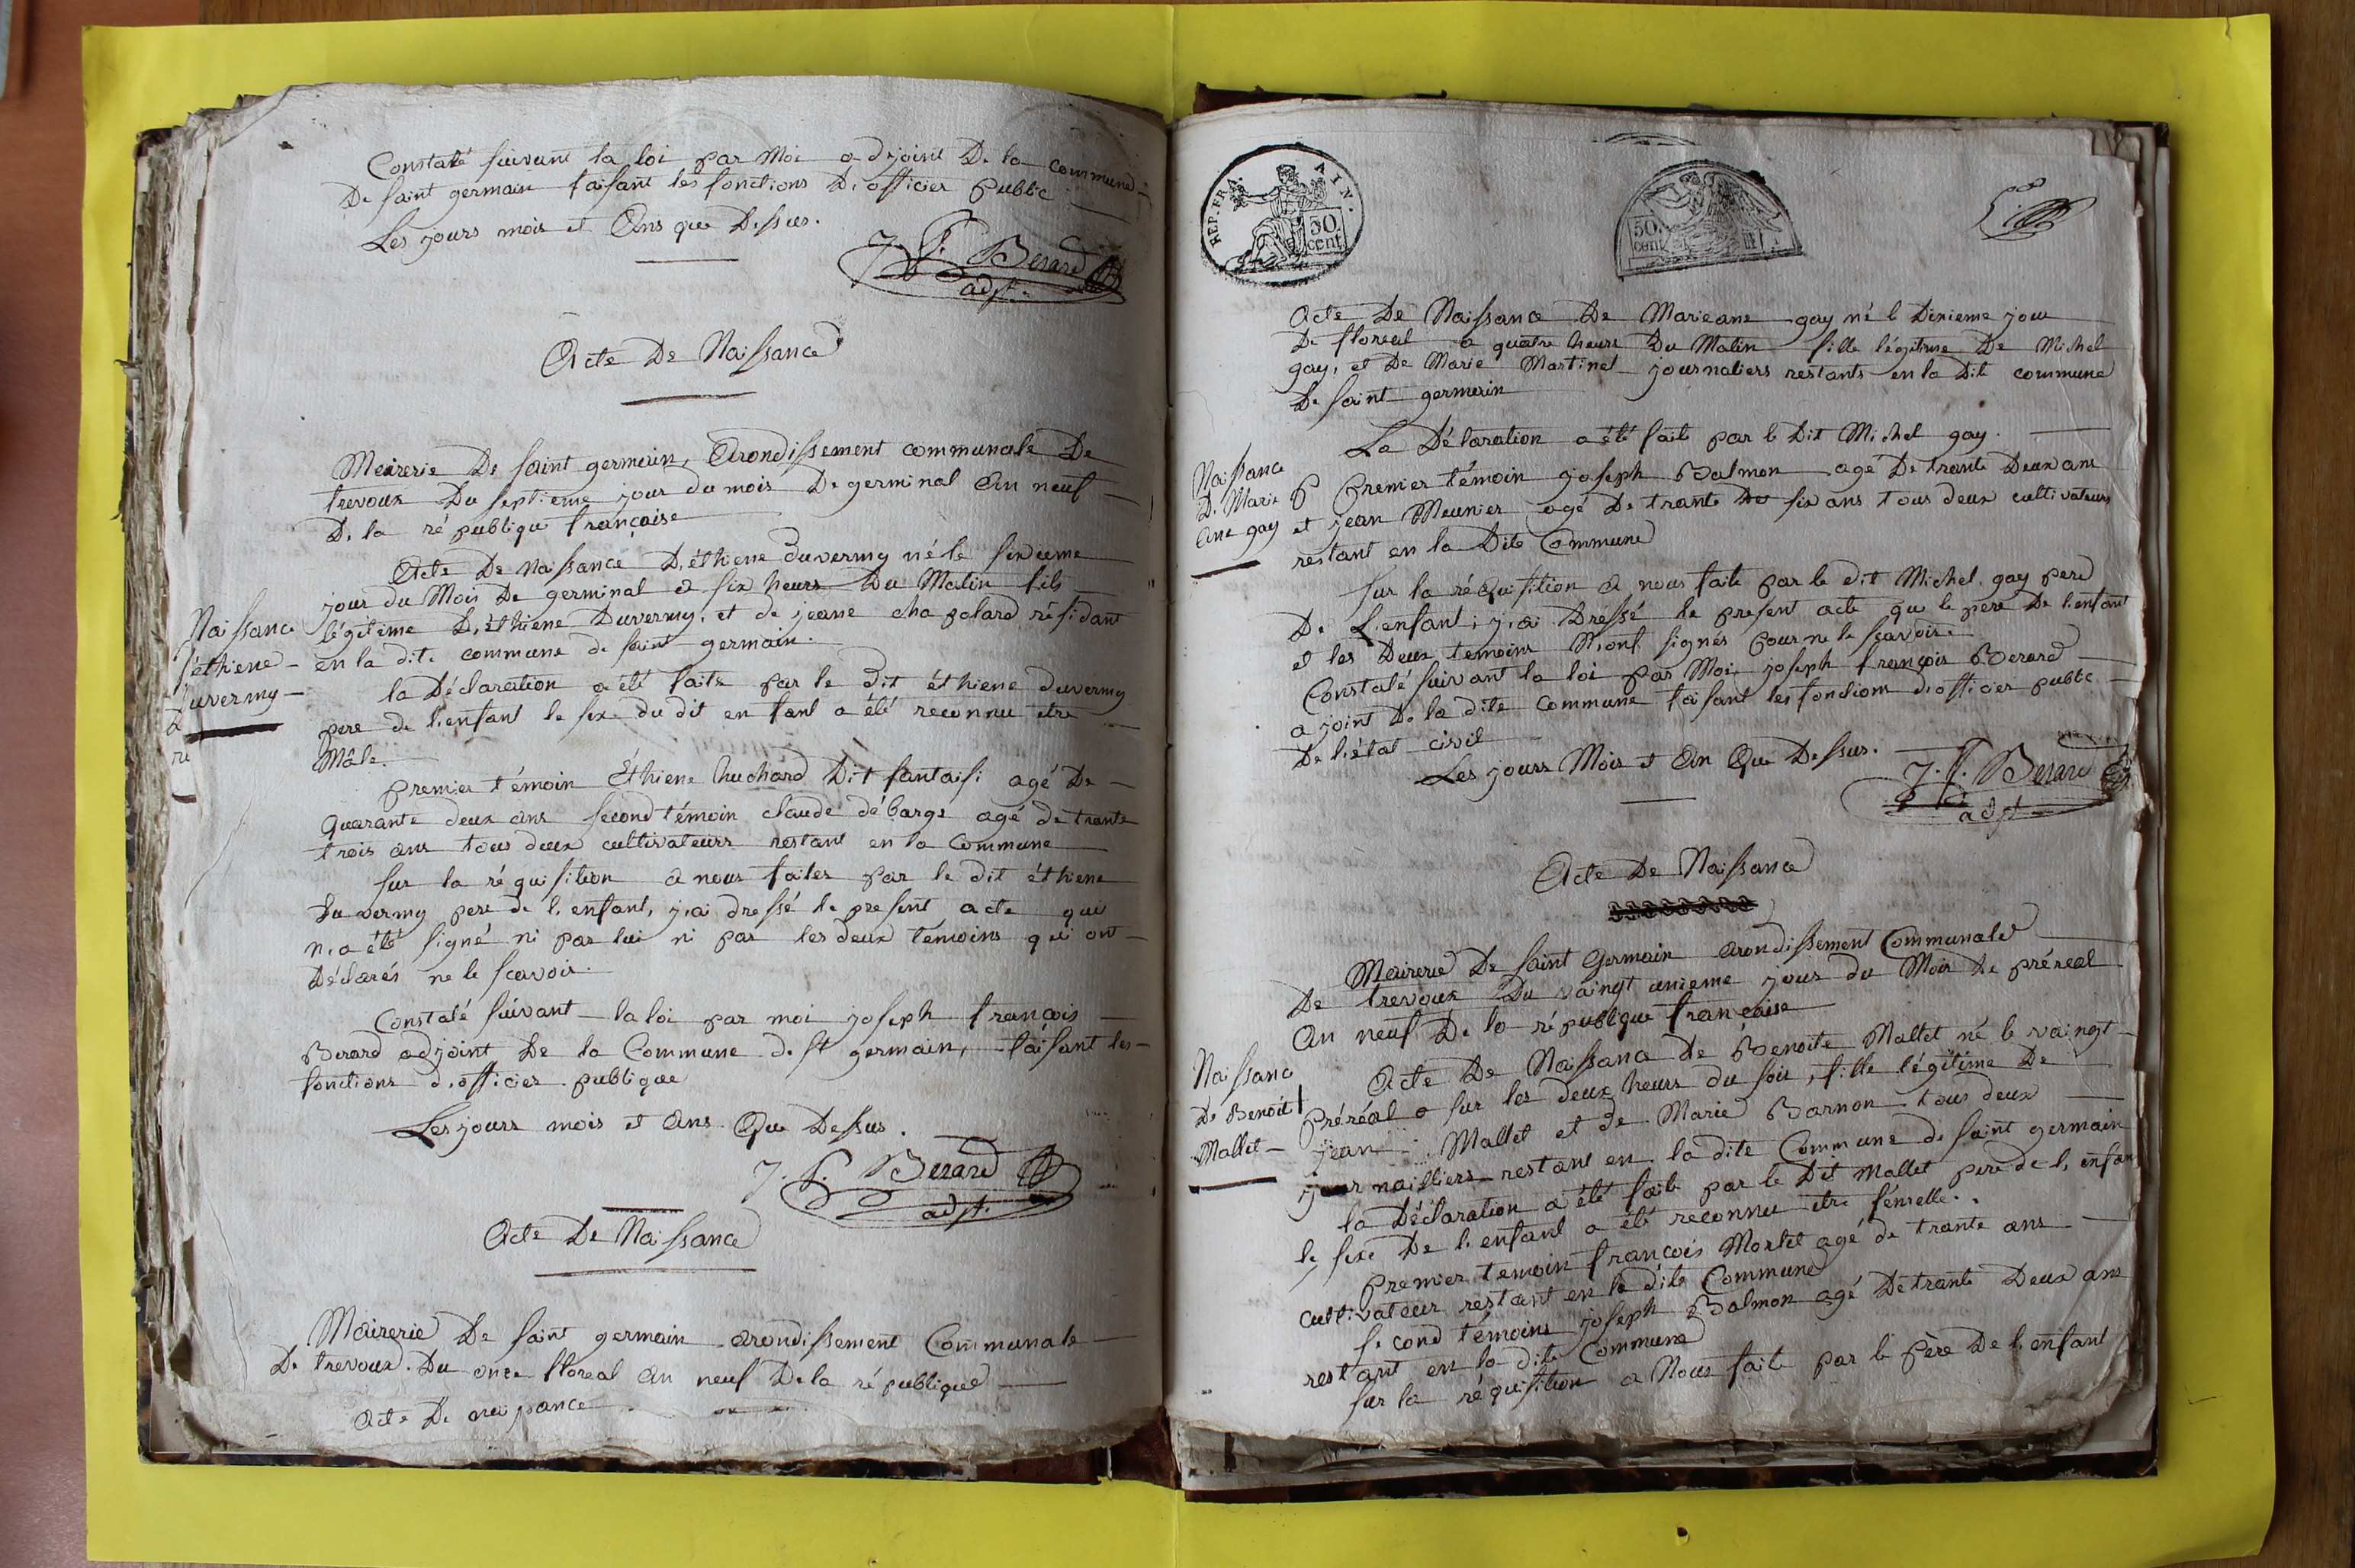 Constaté suivant la loi par Moi adjoint De la commune
De saint germain faisant les fonctions D, officier public
Les jours mois et Ans que Dessus.
J. f. Berard
adjt.
Acte De Naissance
Mairerie De saint germain, Arondissement communale De
trevoux Du septieme jour du mois De germinal An neuf
D, la république française
Acte De naissance D, éthiene Duvermy né le sixieme
jour du Mois De germinal à six heurs Du Matin fils
légitime D, éthiene Duvermy, et de jeane chapolard résidant
en la dite commune de saint germain.
Naissance
éthiene
Duvermy
la Déclaration a été faite par le dit éthiene duvermy
pere de l, enfant le sexe du dit enfant a été reconnu etre
Mâle.
premier témoin Éthiene huchard Dit fantaisi agé De
quarante deux ans second témoin claude débarge agé de trante
trois ans tous deux cultivateurs restant en la Commune
sur la réquisition a nous faites par le dit éthiene
Duvermy pere de l, enfant, j, ai dressé le present acte qui
n, a été signé ni par lui ni par les deux temoins qui ont
Déclarés ne le scavoir.
Constaté suivant la loi par moi joseph françois
Berard adjoint De la Commune de st germain, faisant les
fonctions d, officier publique
Les jours mois et Ans Que Dessus.
J. f. Berard
adjt.
Acte De Naissance
Mairerie De saint germain arondissement Communale
De trevoux. Du onze floreal An neuf De la république
Acte De naissance
REP. FRA. AIN.
50. cent
50. cent
Acte De Naissance De Marieane gay né l Dixieme jour
De floreal a quatre heurs Du Matin fille légitime De Michel
gay, et De Marie Martinet journaliers restants en la Dite commune
De saint germain
La Déclaration a été faite par le Dit Michel gay.
Naissance
D, Marie
Ane gay
premier témoin joseph Balmon agé De trante Deux ans
et jean Meunier agé De trante six ans tous deux cultivateurs
restant en la Dite Commune
sur la réquisition a nous faite par le dit Michel gay pere
De L, enfant, j, ai Dréssé le present acte que le pere De l, enfant
et les Deux temoins N, ont signés pour ne le scavoir.
Constaté suivant la loi par Moi joseph françois Berard
ajoint De la dite Commune faisant les fonctions d, officier public
De l, état civil
Les jours Mois et An Que Dessus.
J. f. Berard
adjt
Acte De Naissance
Mairerie De saint Germain arondissement Communale
De trevoux Du vaingt unieme jour du Mois De préreal
An neuf De la république française
Acte De Naissance De Benoite Mallet né le vaingt
préréal a sur les deux heurs du soir, fille légitime De
jean Mallet et de Marie Barnon tous deux
journailliers restant en la dite Commune de saint germain
Naissanc
De Benoit
Mallet
la Déclaration a été faite par le Dit Mallet pere de l, enfan
le sexe De l, enfant a été reconnu etre fémelle.
premier temoin françois Mortel agé de trante ans
cultivateur restant en la dite Commune
second témoins joseph Balmon agé De trante Deux ans
restant en la dite Commune
sur la réquisition a Nous faite par le père De l, enfant